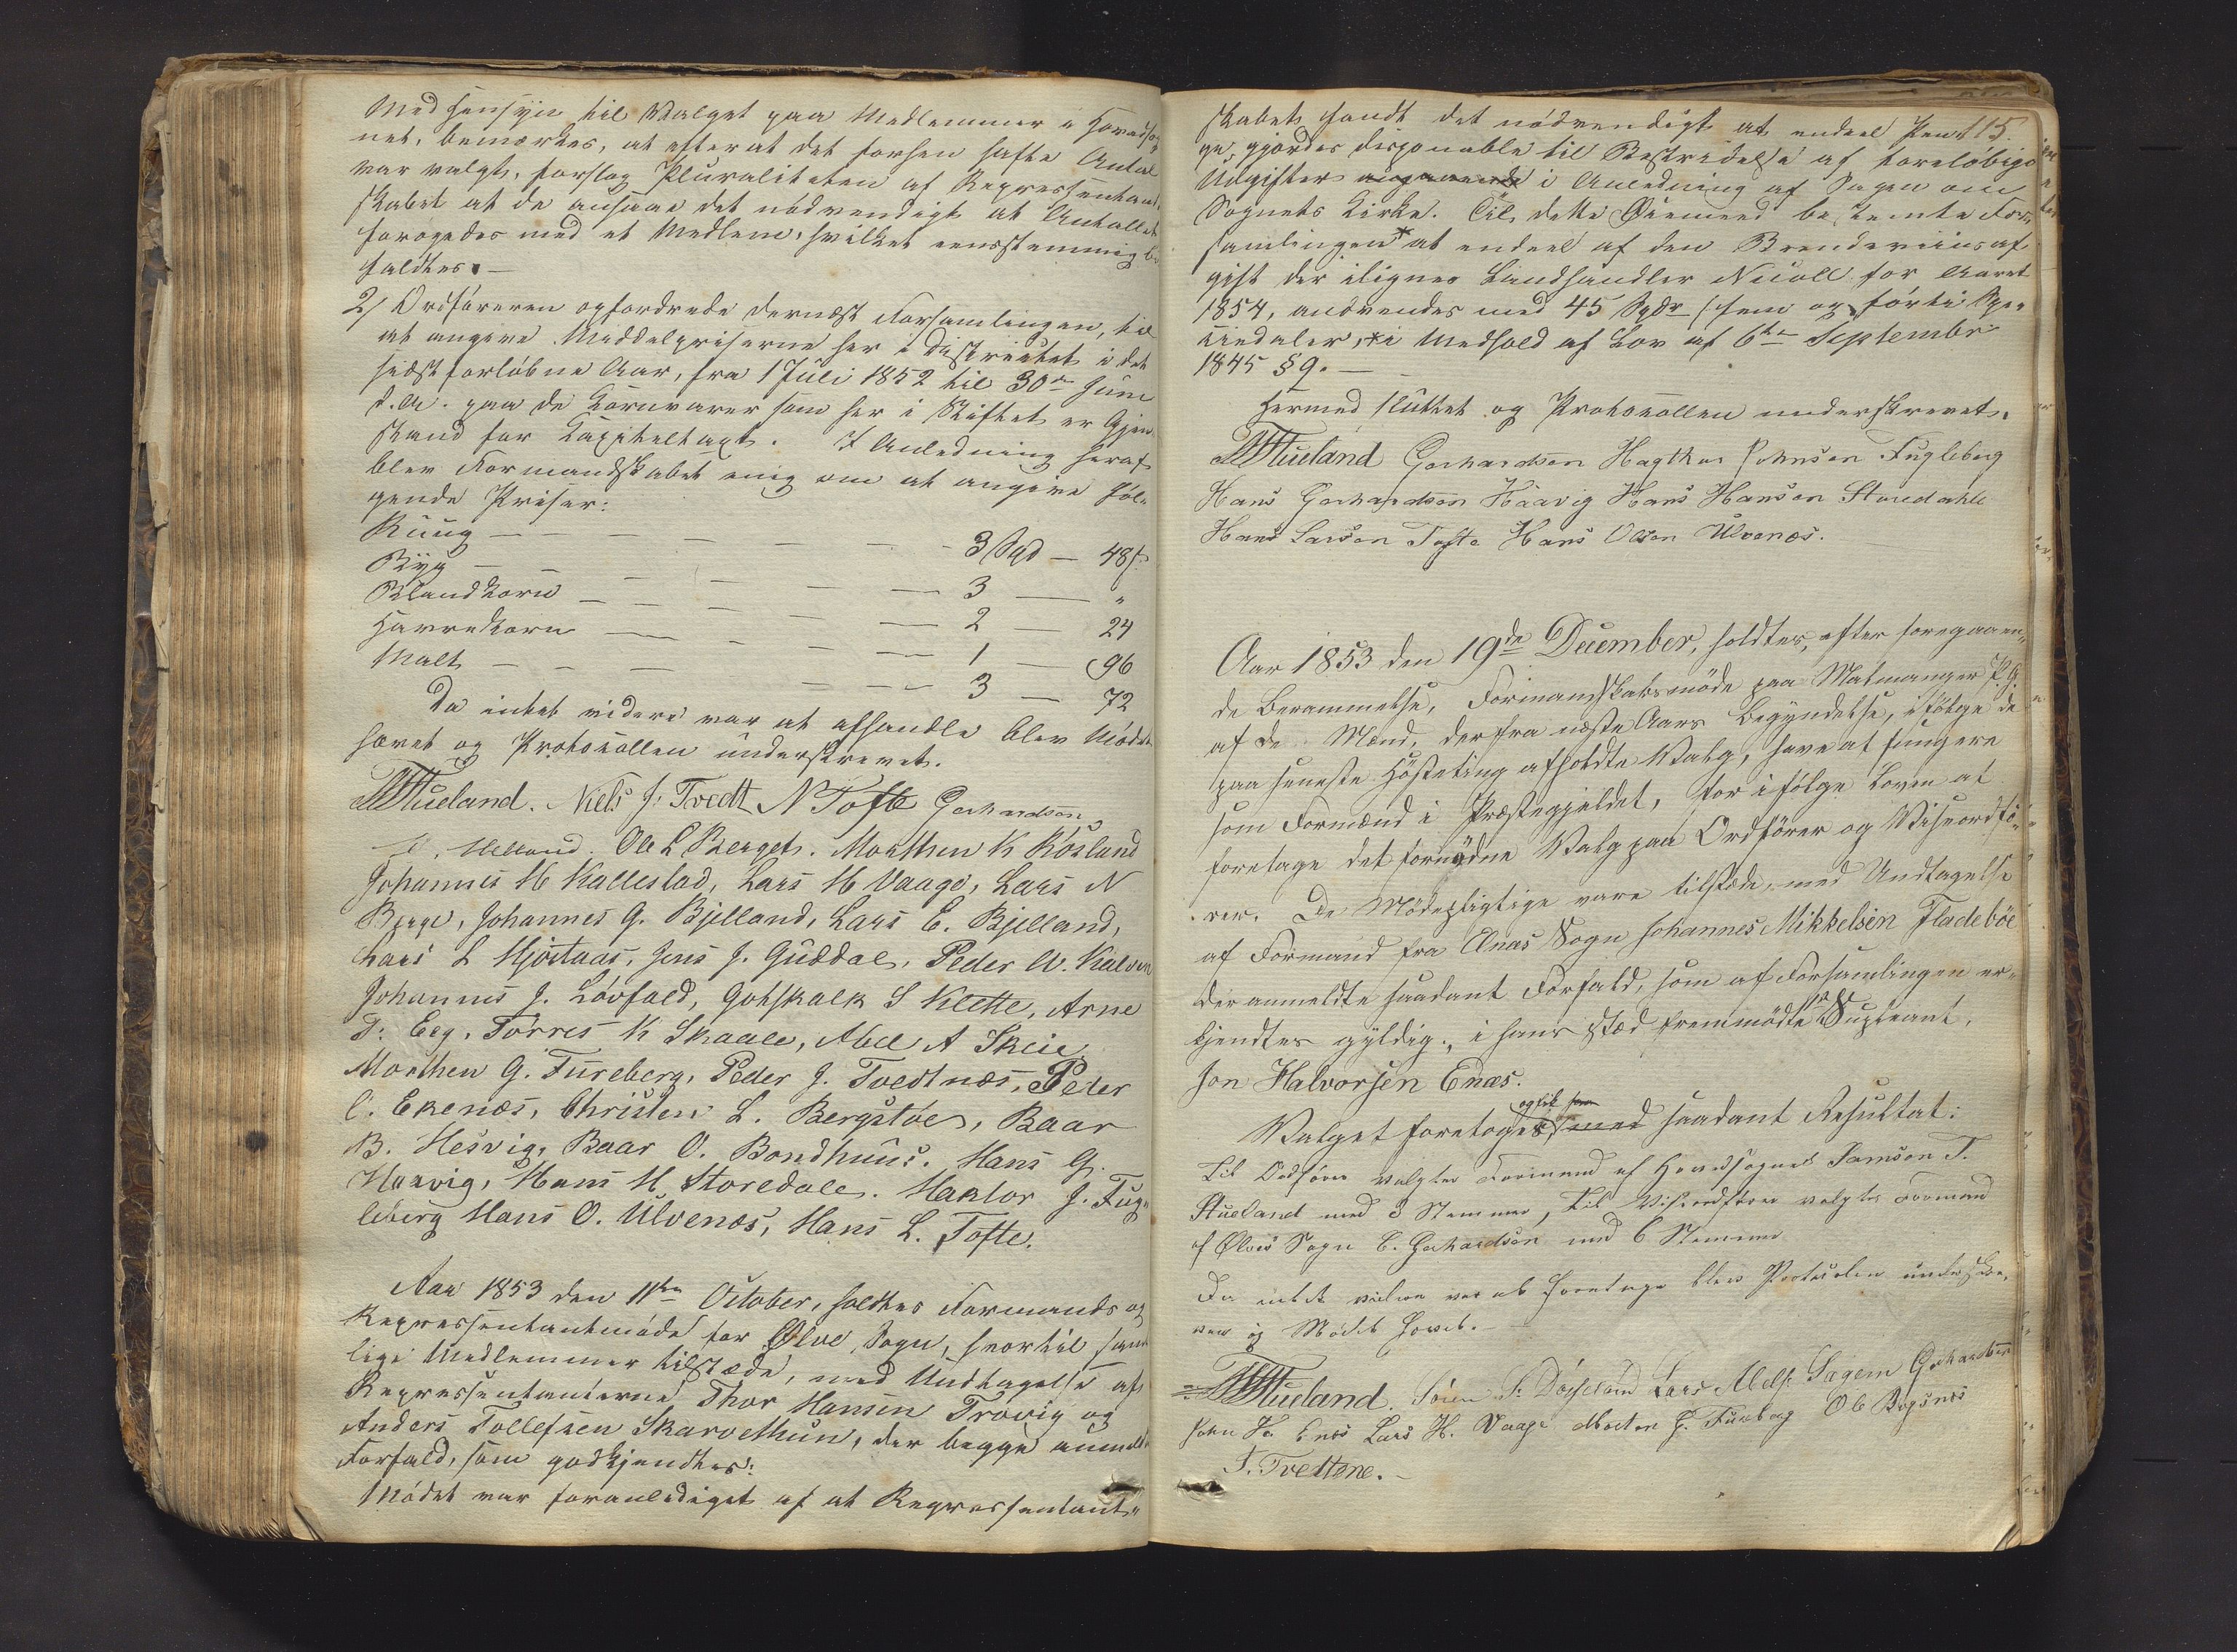 Med Hensyn til Valget paa Medlemmer i Hovedsog
net, bemærkes, at efterat det forhen hafte Antal
var valgt, forslog Pluraliteten af Repræsentant
skabet at de ansaae det nødvendigt at Antallet
forøgedes med et Medlem, hvilket eensstemmig be
faldtes. —
2) Ordføreren opfordrede dernæst Forsamlingen, til
at angive Middelpriserne her i Districtet i det
sidst forløbne Aar, fra 1 Juli 1852 til 30te Juni
d. A. paa de Kornvarer som her i Stiftet er Gjen
stand for Kapiteltaxt. I Anledning heraf
blev Formandskabet enig om at angive føl-
gende Priser:
Ruug — 3 Spd — 48 s
Byg — 3 — "
Blandkorn — 2 — 24
Havrekorn — 1 — 96
Malt — 3 — 72
Da intet videre var at afhandle blev Mødet
hævet og Protokollen underskrevet.
Stueland. Niels J: Tvedt N Tofte Gerhardson
Helland. Ole L Berget. Morthen K Røsland
Johannes M Kallestad, Lars H Vaage, Lars N
Berge, Johannes G. Bjelland, Lars E. Bjelland,
Lars L Hjortaas, Jens J. Guddal, Peder A. Kalven
Johannes J. Løvfald, Gotskalk S Klette, Arne
T. Eeg, Tørres K Skaale, Abel A Skeie
Morthen G. Fureberg, Peder J. Tvedtnæs, Peder
C. Ekenæs, Christen L. Bergstøe, Baar
B. Hesvig, Baar O. Bondhuus. Hans G.
Haavig, Hans H Storedale. Haktor J. Fug-
leberg Hans O. Ulvenæs, Hans L. Tofte.
Aar 1853 den 11te October, holdtes Formands og
Repræsentantmøde for Ølve Sogn, hvortil samt
lige Medlemmer tilstæde, med Undtagelse af
Repræsentanterne Thor Hansen Trovig og
Anders Tollefsen Skarvethun, der begge anmeldte
Forfald, som godkjendtes:
Mødet var foranlediget af at Repræsentant-
115.
skabet fandt det nødvendigt at endeel Pen
ge gjordes disponable til Bestridelse af foreløbige
Udgifter angaaende i Anledning af Sagen om
Sognets Kirke. Til dette Øiemeed bestemte For-
samlingen * at endeel af den Brændeviinsaf
gift der ilignes Landhandler Nicoll for Aaret
1854, anvendes med 45 Spdr (fem og førti Spe-
ciedaler, * i Medhold af Lov af 6te Septembr
1845 § 9. —
Hermed sluttet og Protokollen underskrevet.
Stueland Gerhardson Hagthor Johnsen Fugleberg
Hans Gerhardson Haavig Hans Hanson Storedahle
Hans Larson Tofte Hans Olson Ulvenæs.
Aar 1853 den 19de December, holdtes, efter foregaaen-
de Berammelse, Formandskabsmøde paa Malmanger P.G.
af de Mænd, der fra næste Aars Begyndelse, ifølge de
paa seneste Høsteting afholdte Valg, have at fungere
som Formænd i Præstegjeldet, for ifølge Loven at
foretage det fornødne Valg paa Ordfører og Viseordfø-
rer. De Mødepligtige vare tilstede, med Undtagelse
af Formand fra Enæs Sogn Johannes Mikkelsen Fladebøe
der anmeldte saadant Forfald, som af Forsamlingen er-
kjendtes gyldig., i hans Stæd fremmødte Supleant,
Jon Halvorsen Enæs.
Valget foretoges, med saadant Resultat:
Til Ordfører valgtes Formand af Hovedsognet Samson T.
Stueland med 8 Stemmer, til Viseordfører valgtes Formand
af Ølves Sogn C. Gerhardson med 6 Stemmer
Da intet videre var at foretage blev Protocolen underskre-
ven og Mødet hævet. —
Stueland. Lars Gerhardson
Enes Lars H. Vaage Morten G. Fureberg
T. Tvettene. —